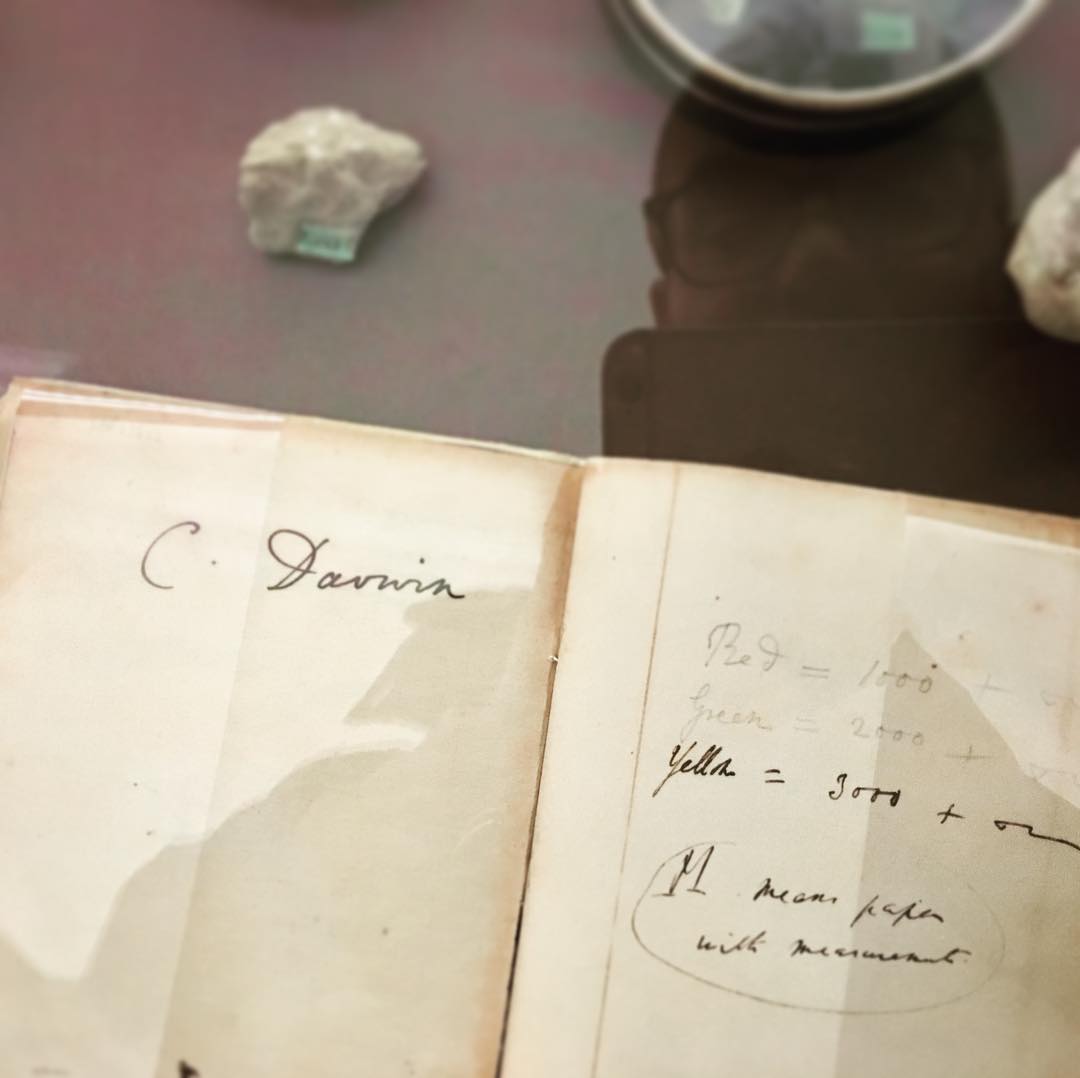 C. Darwin
Red = 1000 +
Green = 2000 +
Yellow = 3000 + on
M means paper
with measurements